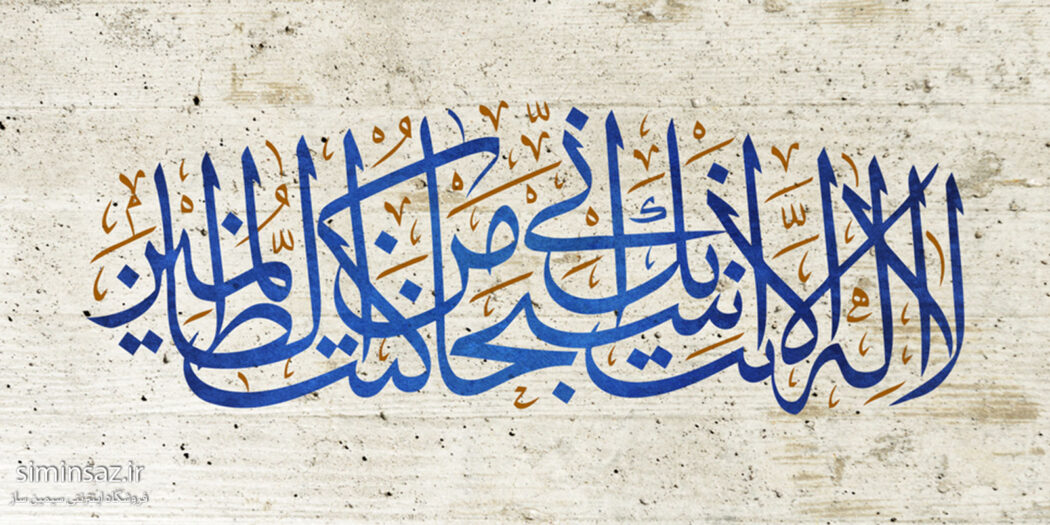 لا إله إلا أنت سبحانك إني كنت من الظالمين
siminsaz.ir
فروشگاه اینترنتی سیمین ساز